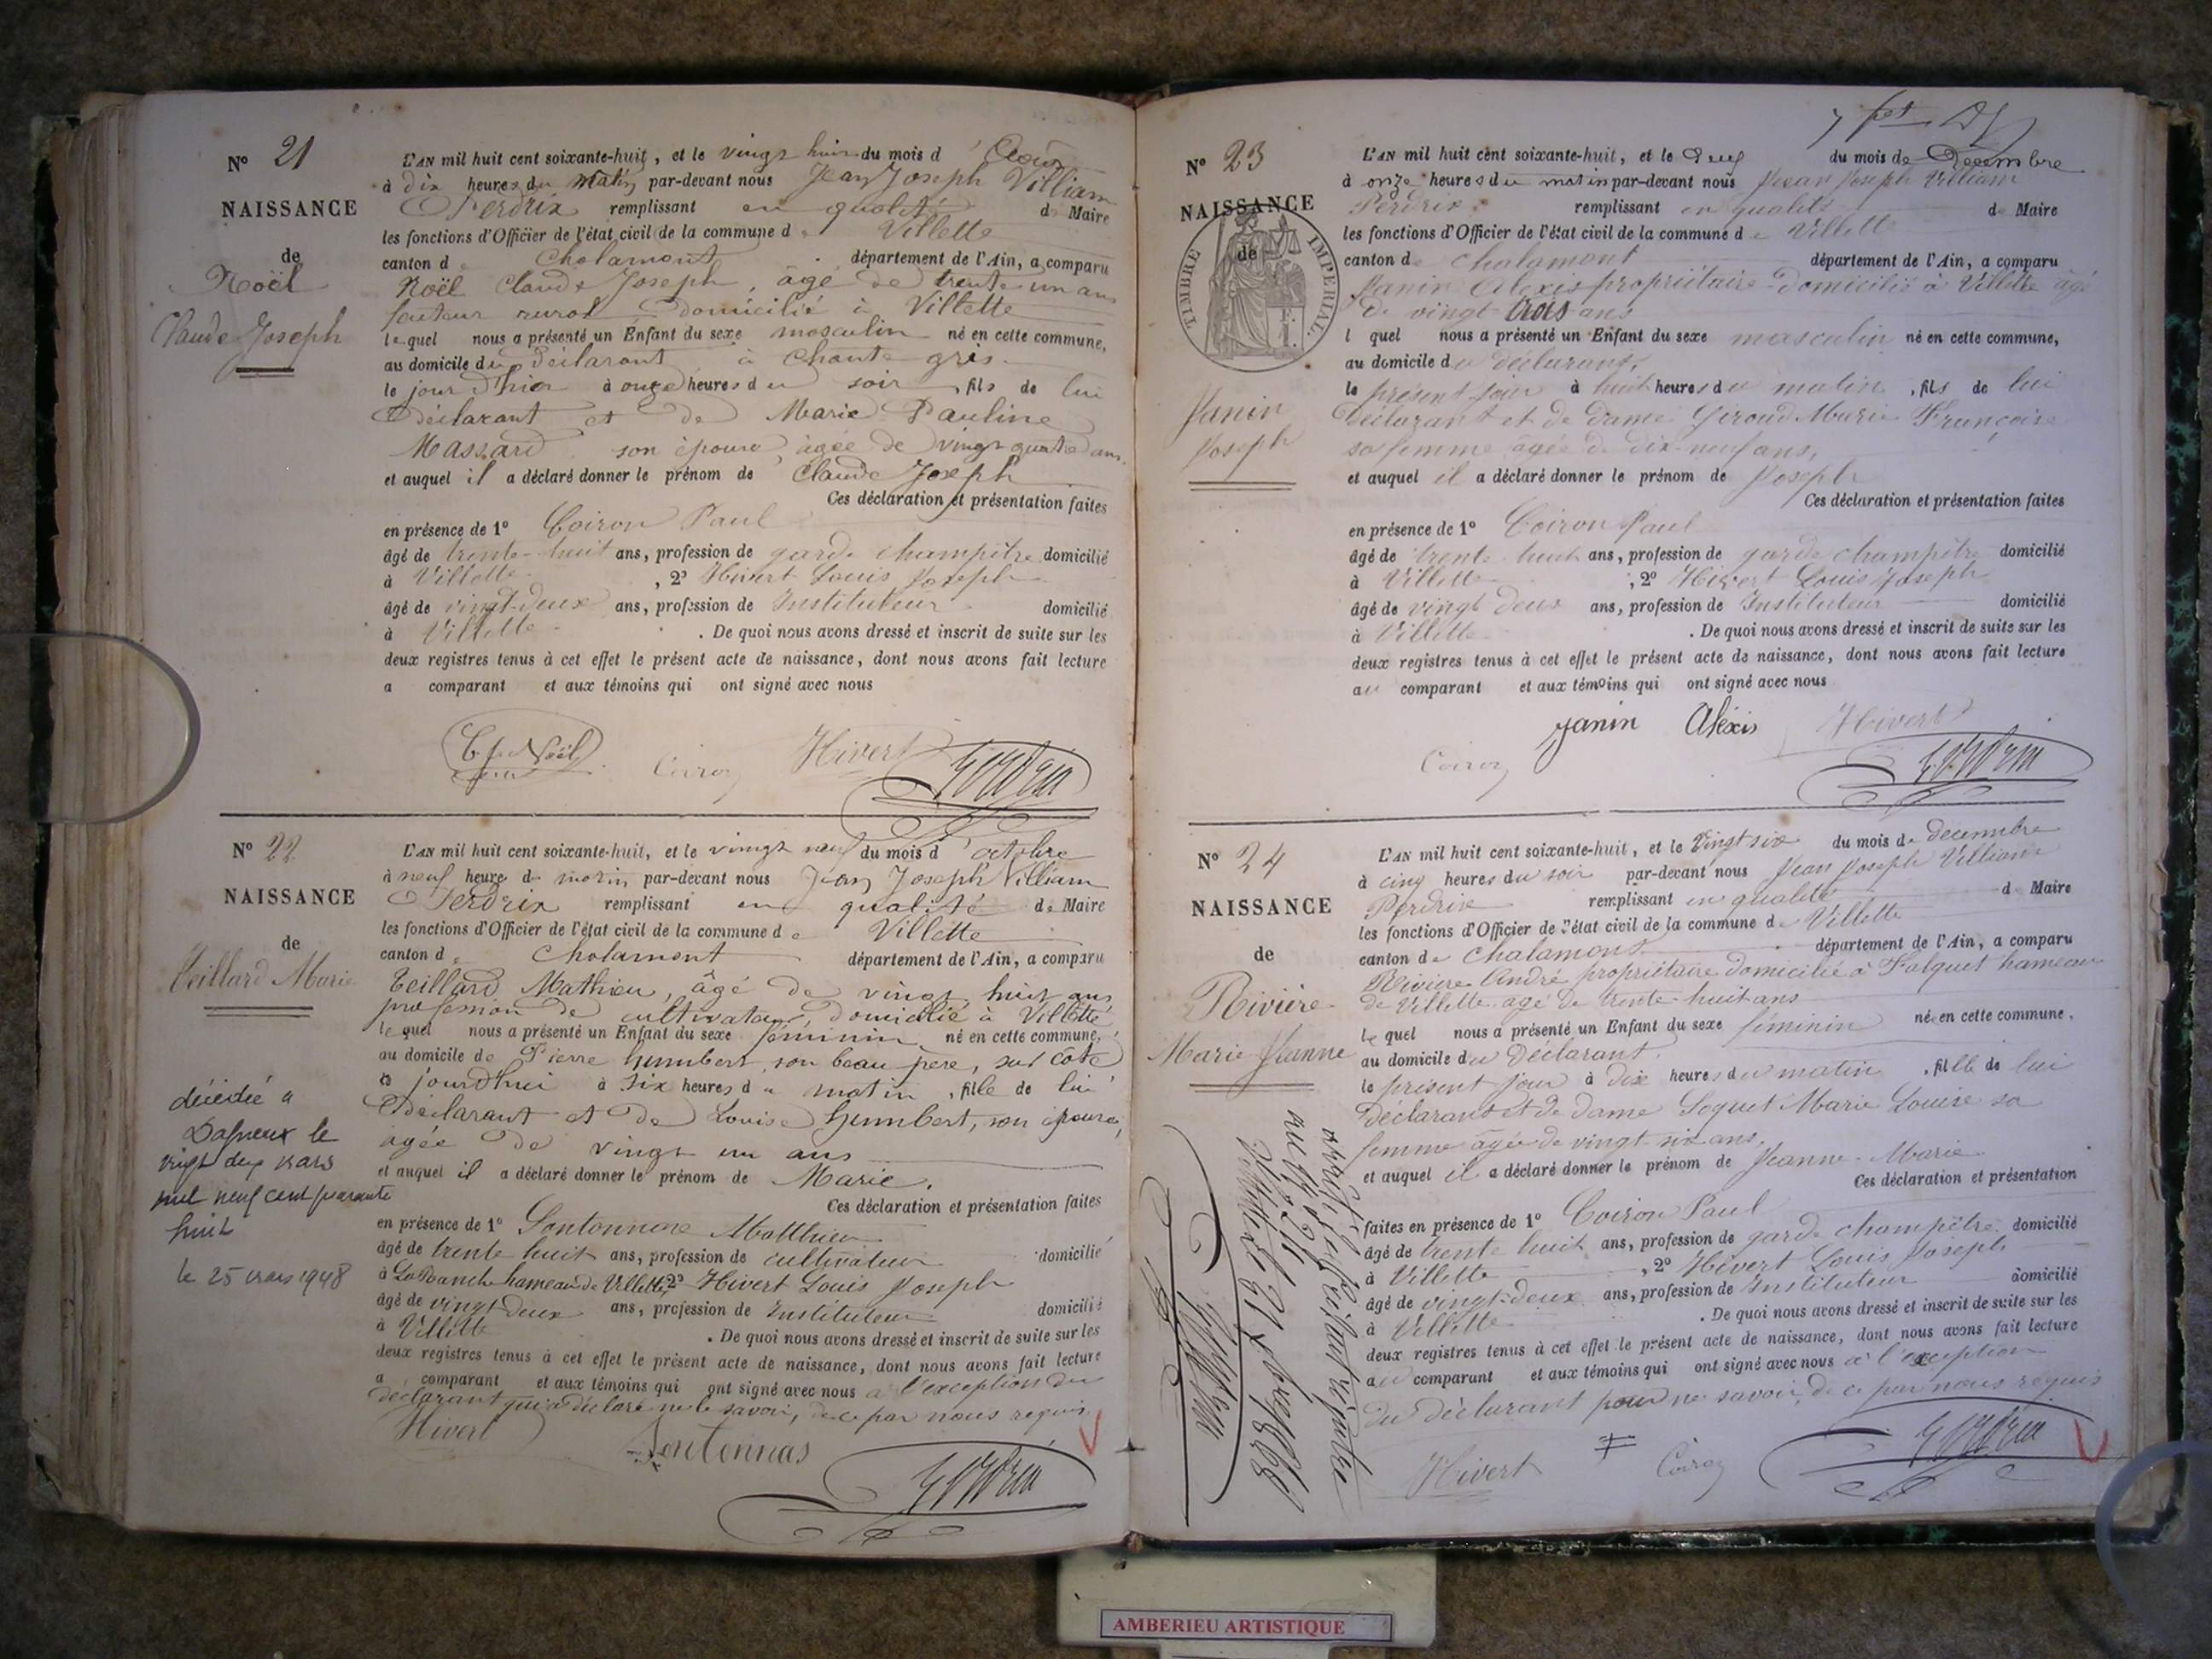 N° 21
NAISSANCE
de
Noël
Claude Joseph
L'AN mil huit cent soixante-huit, et le vingt huit du mois d'Août
à dix heures du matin par-devant nous Jean Joseph Villiam
Perdrix remplissant en qualité de Maire
les fonctions d'Officier de l'état civil de la commune de Villette
canton de Chalamont département de l'Ain, a comparu
Noël Claude Joseph, âgé de trente un ans
facteur rural domicilié à Villette
lequel nous a présenté un Enfant du sexe masculin né en cette commune,
au domicile du déclarant à Chante gris
le jour d'hier à onze heures du soir, fils de lui
Déclarant et de Marie Pauline
Massard son épouse âgée de vingt quatre ans.
et auquel il a déclaré donner le prénom de Claude Joseph
Ces déclaration et présentation faites
en présence de 1° Coiron Paul
âgé de trente-huit ans, profession de garde champêtre domicilié
à Villette, 2° Hivert Louis Joseph
âgé de vingt-deux ans, profession de Instituteur domicilié
à Villette. De quoi nous avons dressé et inscrit de suite sur les
deux registres tenus à cet effet le présent acte de naissance, dont nous avons fait lecture
a comparant et aux témoins qui ont signé avec nous
C. J. Noël Coiron Hivert Perdrix
N° 22
NAISSANCE
de
Teillard Marie
L'AN mil huit cent soixante-huit, et le vingt neuf du mois d'octobre
à neuf heures du matin par-devant nous Jean Joseph Villiam
Perdrix remplissant en qualité de Maire
les fonctions d'Officier de l'état civil de la commune de Villette
canton de Chalamont département de l'Ain, a comparu
Teillard Mathieu, âgé de vingt huit ans
profession de cultivateur, domicilié à Villette
lequel nous a présenté un Enfant du sexe féminin né en cette commune,
au domicile de Pierre humbert, son beau père, sur côte
ce jourd'hui à six heures du matin, fille de lui
Déclarant et de Louise humbert, son épouse,
agée de vingt un ans
et auquel il a déclaré donner le prénom de Marie.
Ces déclaration et présentation faites
en présence de 1° Matthieu
âgé de trente huit ans, profession de cultivateur domicilié
à La Ranche hameau de Villette, 2° Hivert Louis Joseph
âgé de vingt-deux ans, profession de Instituteur domicilié
à Villette. De quoi nous avons dressé et inscrit de suite sur les
deux registres tenus à cet effet le présent acte de naissance, dont nous avons fait lecture
a comparant et aux témoins qui ont signé avec nous a l'exception du
déclarant qui a déclaré ne le savoir, de ce par nous requis
Hivert Perdrix
décédée à
Dagneux le
vingt deux mars
mil neuf cent quarante
huit
le 25 mars 1948
N° 23
NAISSANCE
de
TIMBRE IMPERIAL
Janin
Joseph
L'AN mil huit cent soixante-huit, et le deux du mois de Décembre
à onze heures du matin par-devant nous Jean Joseph Villiam
Perdrix remplissant en qualité de Maire
les fonctions d'Officier de l'état civil de la commune de Villette
canton de Chalamont département de l'Ain, a comparu
Janin Alexis propriétaire domicilié à Villette âgé
de vingt trois ans
lquel nous a présenté un Enfant du sexe masculin né en cette commune,
au domicile du déclarant,
le présent jour à huit heures du matin, fils de lui
Déclarant et de dame Giroud Marie Françoise
sa femme âgée de dix-neuf ans,
et auquel il a déclaré donner le prénom de Joseph
Ces déclaration et présentation faites
en présence de 1° Coiron Paul
âgé de trente huit ans, profession de garde champêtre domicilié
à Villette, 2° Hivert Louis Joseph
âgé de vingt deux ans, profession de Instituteur domicilié
à Villette. De quoi nous avons dressé et inscrit de suite sur les
deux registres tenus à cet effet le présent acte de naissance, dont nous avons fait lecture
au comparant et aux témoins qui ont signé avec nous
janin Aléxis Hivert
Coiron Perdrix
N° 24
NAISSANCE
de
Rivière
Marie Jeanne
L'AN mil huit cent soixante-huit, et le Vingt six du mois de décembre
à cinq heures du soir par-devant nous Jean Joseph Villiam
Perdrix remplissant en qualité de Maire
les fonctions d'Officier de l'état civil de la commune de Villette
canton de Chalamont département de l'Ain, a comparu
Rivière André propriétaire domicilié à Falquet hameau
de Villette agé de trente-huit ans
lequel nous a présenté un Enfant du sexe féminin née en cette commune,
au domicile du Déclarant.
le présent jour à dix heures du matin, fille de lui
déclarant et de dame Loquet Marie Louise sa
femme âgée de vingt-six ans,
et auquel il a déclaré donner le prénom de Jeanne-Marie
Ces déclaration et présentation
faites en présence de 1° Coiron Paul
âgé de trente huit ans, profession de garde champêtre domicilié
à Villette, 2° Hivert Louis Joseph
âgé de vingt-deux ans, profession de Instituteur domicilié
à Villette. De quoi nous avons dressé et inscrit de suite sur les
deux registres tenus à cet effet le présent acte de naissance, dont nous avons fait lecture
au comparant et aux témoins qui ont signé avec nous à l'exception
du déclarant pour ne savoir, de ce par nous requis
Hivert Coiron Perdrix
AMBERIEU ARTISTIQUE